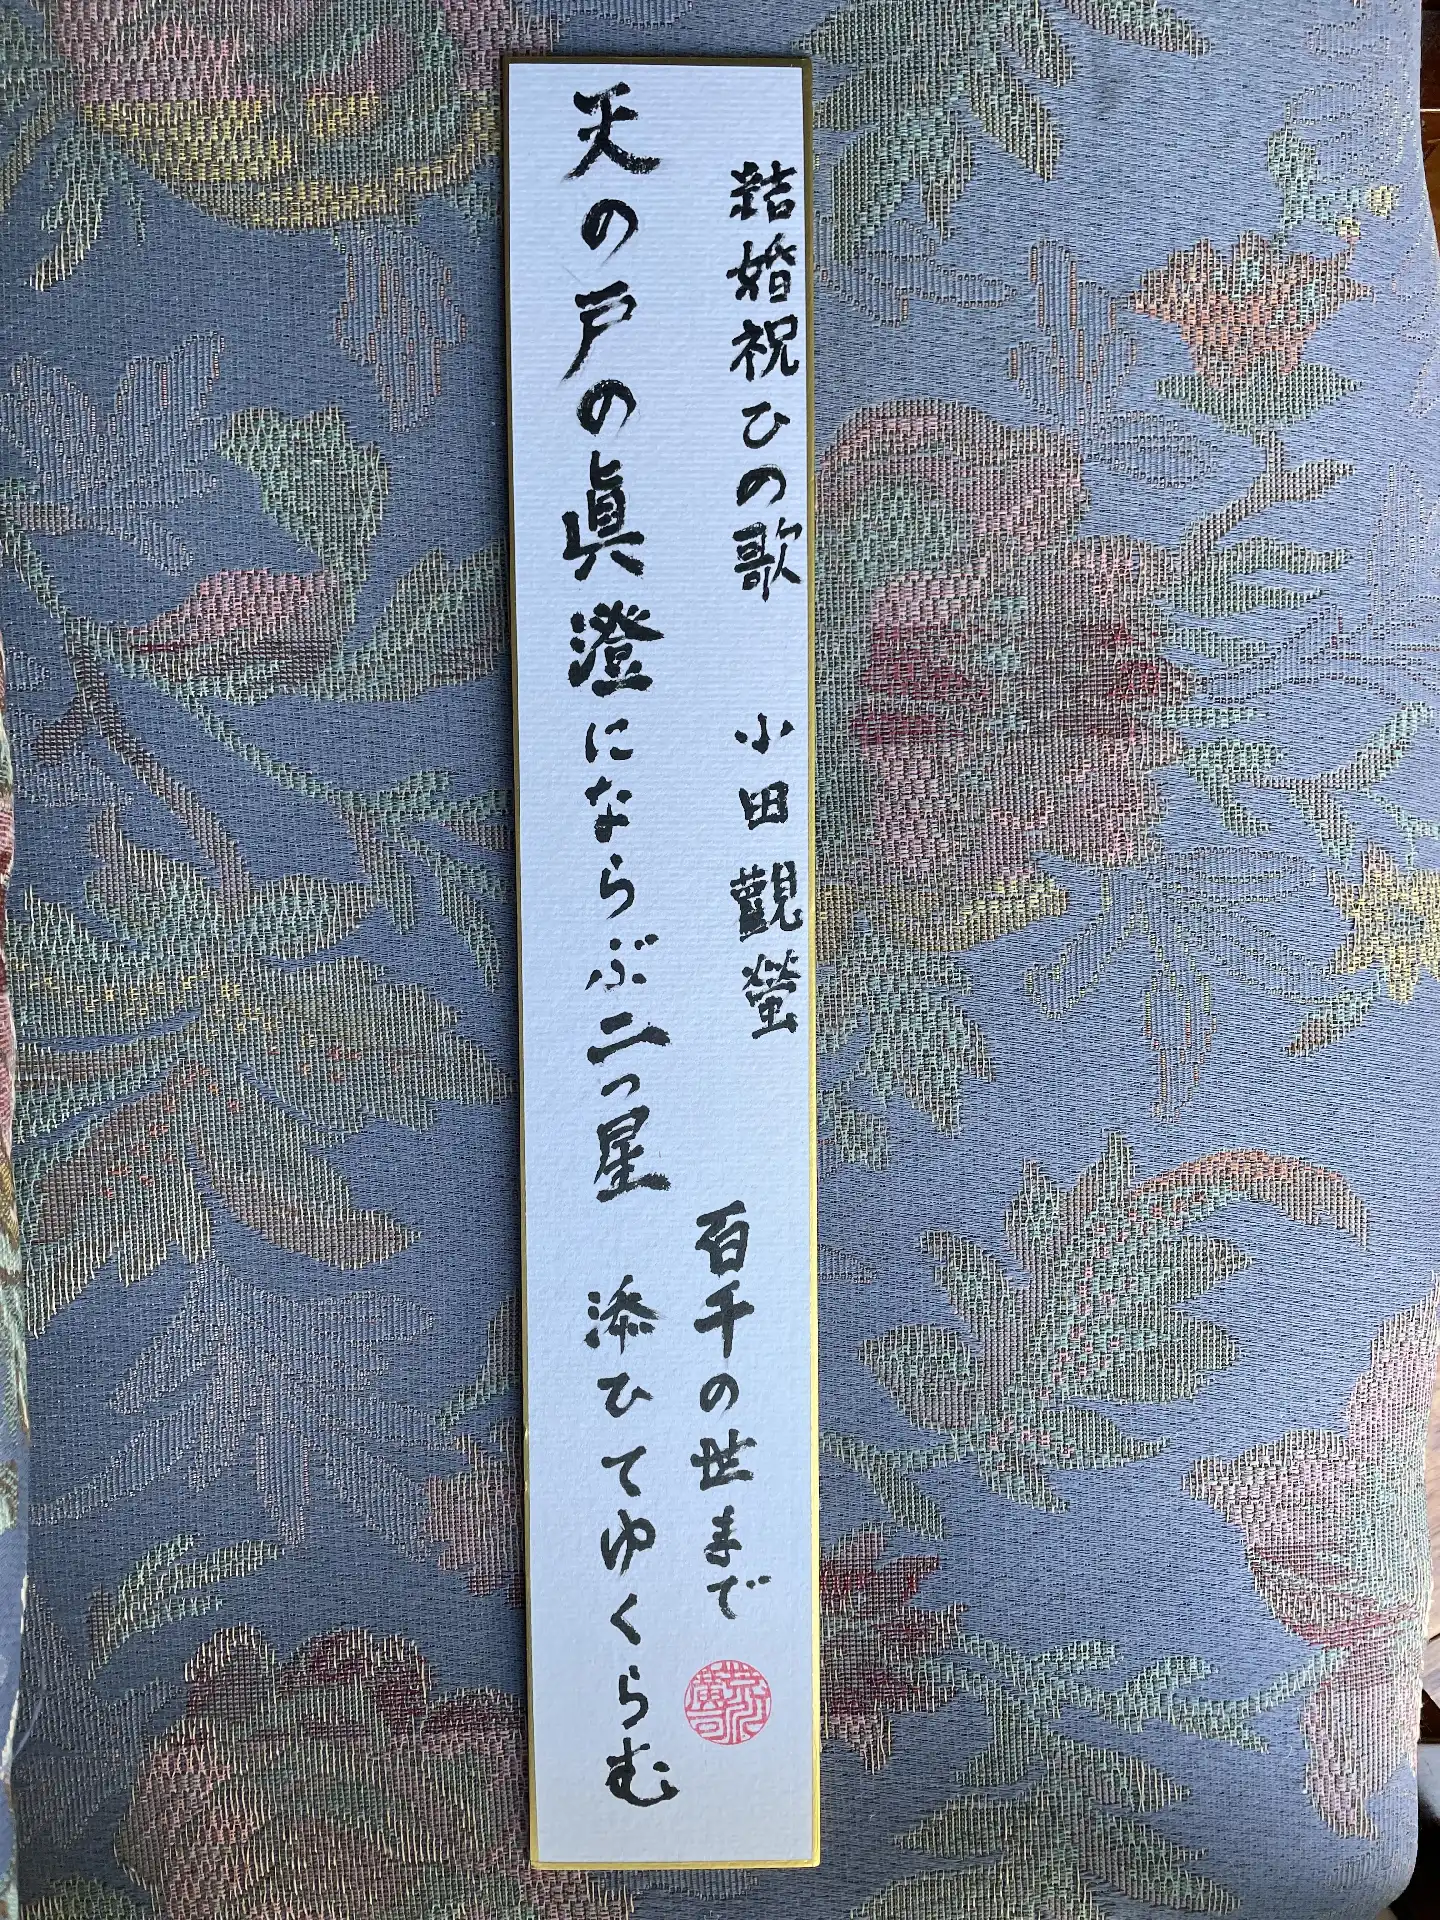 結婚祝ひの歌 小田觀螢
天の戸の眞澄にならぶ二つ星
百千の世まで
添ひてゆくらむ